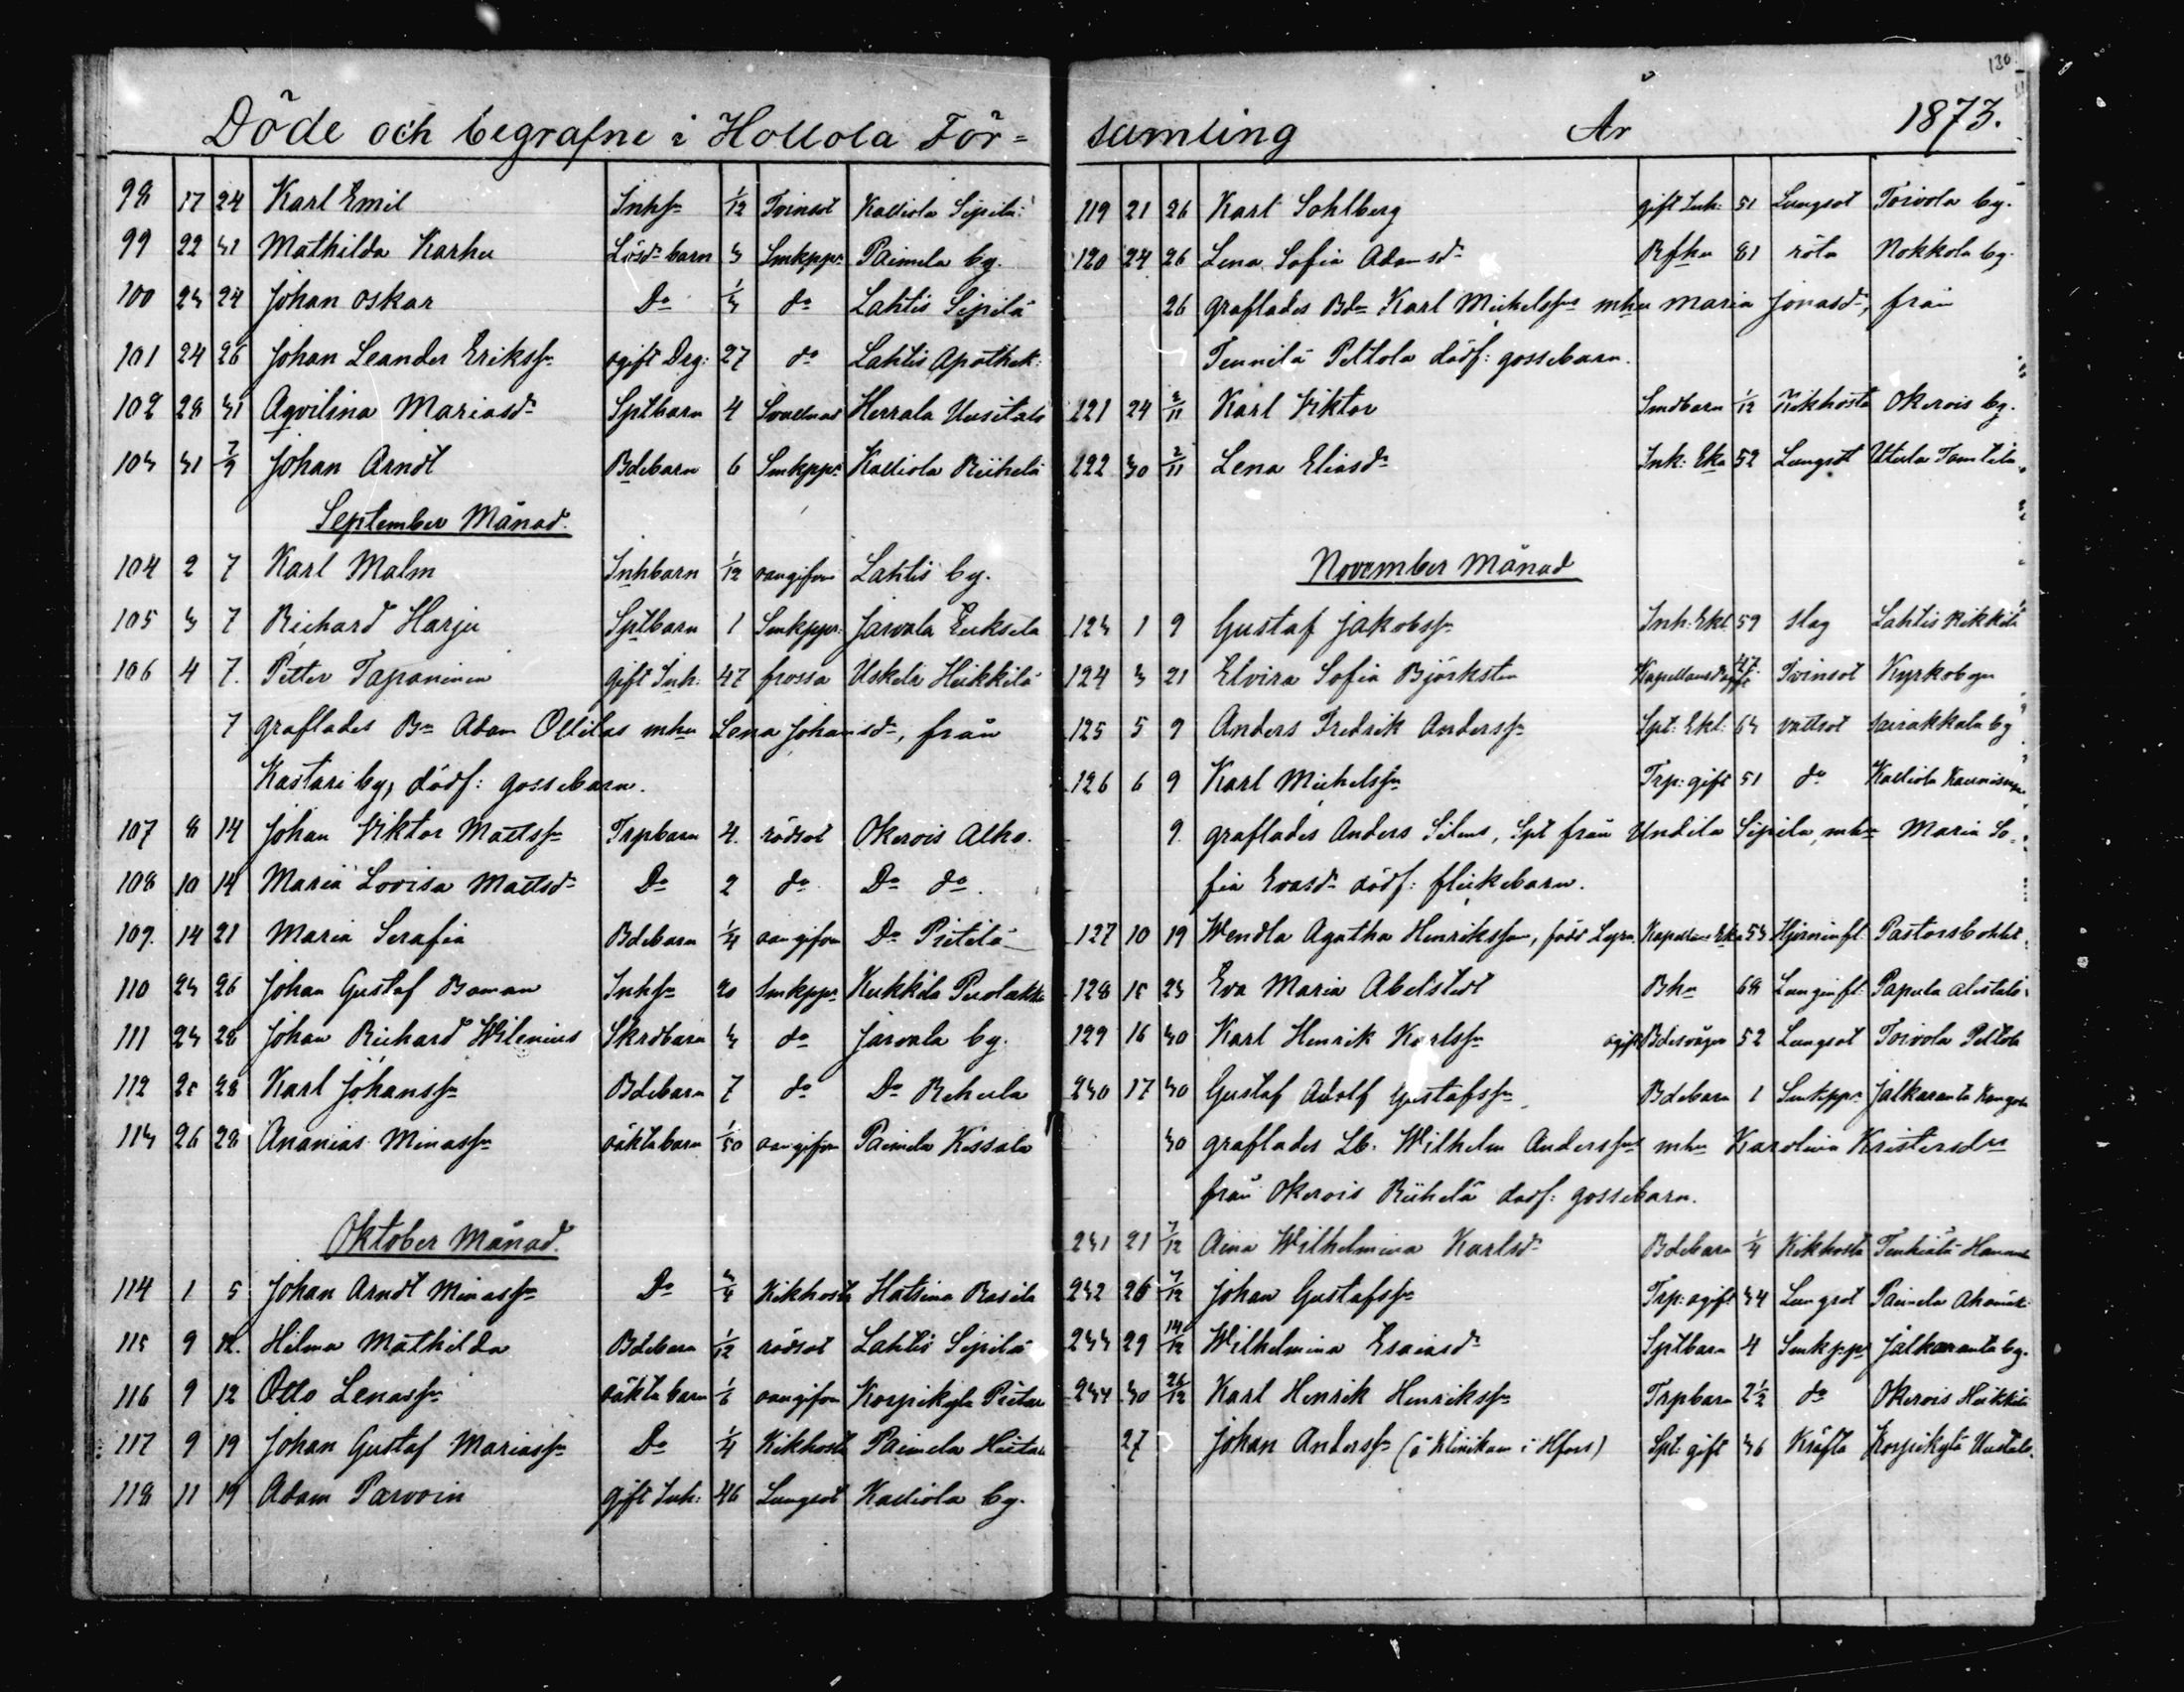 130
Döde och begrafne i Hollola För=
98 17 24 Karl Emil Inhsn 1/12 Tvinsot Kalliola Sipilä
99 22 31 Mathilda Karhu Lösd: barn 3 Smkppr Paimela by.
100 23 24 Johan Oskar Do 1/3 do Lahtis Sipilä
101 24 26 Johan Leander Erikssn ogift Drg: 27 do Lahtis Apothek:
102 28 31 Aqvilina Mariasdr Sptbarn 4 Herrala Uusitalo
103 31 7/9 Johan Arndt Bdebarn 6 Smkppr Kalliola Riihelä
September Månad.
104 2 7 Karl Malm Inhbarn 1/12 oangifven Lahtis by.
105 3 7 Richard Harju Sptbarn 1 Smkppr Jarvala Eerikselä
106 4 7. Petter Tapaninen gift Inh: 47 frossa Uskela Heikkilä
7 graflades Bn Adam Ollilas mhu Lena Johansdr, från
Kastari by, dödf: gossebarn.
107 8 14 Johan Viktor Mattssn Trpbarn 4. rödsot Okerois Alho.
108 10 14 Maria Lovisa Mattsdr Do 2 do Do do.
109. 14 21 Maria Serafia Bdebarn 1/4 oangifven Do Pietilä
110 23 26 Johan Gustaf Boman Inhsn 20 Smkppr Kukkila
111 23 28 Johan Richard Wilenius Skrdbarn 3 do Jarvala by.
112 25 28 Karl Johanssn Bdebarn 7 do Do Rekula
113 26 28 Ananias Minassn oäkta barn 1/50 oangifven Paimela Kissala
Oktober Månad.
114 1 5 Johan Arndt Minassn Do 3/4 Kikhosta Hatsina Rasila
115 9 12. Hilma Mathilda Bdebarn 1/12 rödsot Lahtis Sipilä
116 9 12 Otto Lenassn oäkta barn 1/6 oangifven Korpikylä
117 9 19 Johan Gustaf Mariassn Do 1/4 Kikhosta Paimela
118 11 19 Adam Parvoin gift Inh: 46 Lungsot Kalliola by.
samling År 1873.
119 21 26 Karl Sohlberg gift Inh: 51 Lungsot Toivola by.
120 24 26 Lena Sofia Adamsdr 81 röta Nokkola by.
26 graflades Bdn Karl Michelssns mhu Maria Jonasdr, från
Tennilä Peltola dödf: gossebarn.
221 24 2/11 Karl Viktor Smdbarn 1/12 Kikhosta Okerois by.
222 30 2/11 Lena Eliasdr Inh: Eka 52 Lungsot Utula
November Månad
123 1 9 Gustaf Jakobssn Inh: Ekl 59 slag Lahtis
124 3 21 Elvira Sofia Björksten 47 Tvinsot Kyrkobyn
125 5 9 Anders Fredrik Anderssn Spt: Ekl: 63 vattsot Sairakkala by
126 6 9 Karl Michelssn Trp: gift 51 do Kalliola
9. graflades Anders Silens, Spt från Undila Sipila, mhu Maria So=
fia Evasdr dödf: flickebarn.
127 10 19 Wendla Agatha född Kapellans Eka 53 Hjerninfl. Pastorsbohlet
128 15 23 Eva Maria Abelstedt Bhu 68 Lunginfl: Papula alistalo
129 16 30 Karl Henrik Karlssn ogift Bdesvåger 52 Lungsot Toivola Peltola
230 17 30 Gustaf Adolf Gustafssn Bdebarn 1 Smkppr Jalkaranta
30 graflades Lb. Wilhelm Anderssns mhu Karolina Kristersdrs
från Okerois Riihelä dödf: gossebarn.
231 21 7/12 Aina Wilhelmina Karlsdr Bdebarn 1/4 Kikhosta
232 26 7/12 Johan Gustafssn Trp: ogift 34 Lungsot Paimela
233 29 14/12 Wilhelmina Esaiasdr Sptbarn 4 Smkppr Jalkaranta by.
234 30 26/12 Karl Henrik Henrikssn Trpbarn 2 1/2 do Okerois Heikkilä
27 Johan Anderssn (å klinikum i Hfors) Spt: gift 36 Kräfta Korpikylä Uustalo.